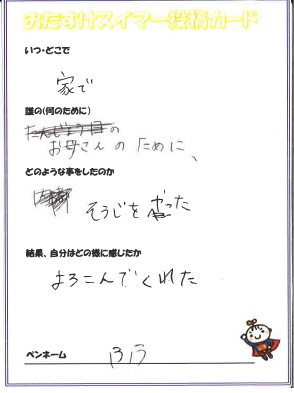 おたすけスイマー投稿カード
いつ・どこで
家で
誰の(何のために)
たんじょう日の
お母さんのために、
どのような事をしたのか
そうじをやった
結果、自分はどの様に感じたか
よろこんでくれた
ペンネーム